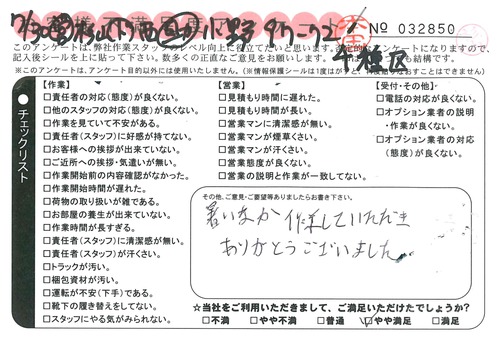 № 032850
このアンケートは、弊社作業スタッフのレベル向上に役立てたいと思います。
記入後シールを上に貼って下さい。数多くの正直なご意見をお願いします。
※このアンケートは、アンケート目的以外には使用いたしません。(※情報保護シールは1度はがすと、作成直すことはできません)
チェックリスト
【作業】
□責任者の対応(態度)が良くない。
□他のスタッフの対応(態度)が良くない。
□作業を見ていて不安がある。
□責任者(スタッフ)に好感が持てない。
□お客様への挨拶が出来ていない。
□ご近所への挨拶・気遣いが無い。
□作業開始前の内容確認がなかった。
□作業開始時間が遅れた。
□荷物の取り扱いが雑である。
□お部屋の養生が出来ていない。
□作業時間が長すぎる。
□責任者(スタッフ)に清潔感が無い。
□責任者(スタッフ)が汗くさい。
□トラックが汚い。
□梱包資材が汚い。
□運転が不安(下手)である。
□靴下の履き替えをしてない。
□スタッフにやる気がみられない。
【営業】
□見積もり時間に遅れた。
□見積もり時間が長い。
□営業マンに清潔感が無い。
□営業マンが煙草くさい。
□営業マンが汗くさい。
□営業態度が良くない。
□営業の説明と作業が一致してない。
【受付・その他】
□電話の対応が良くない。
□オプション業者の説明
・作業が良くない。
□オプション業者の対応
(態度)が良くない。
その他、ご意見・ご要望等ありましたらお書き下さい。
暑いなか 作業していただき
ありがとうございました
☆当社をご利用いただきまして、ご満足いただけたでしょうか?
□不満 □やや不満 □普通 □やや満足 □満足